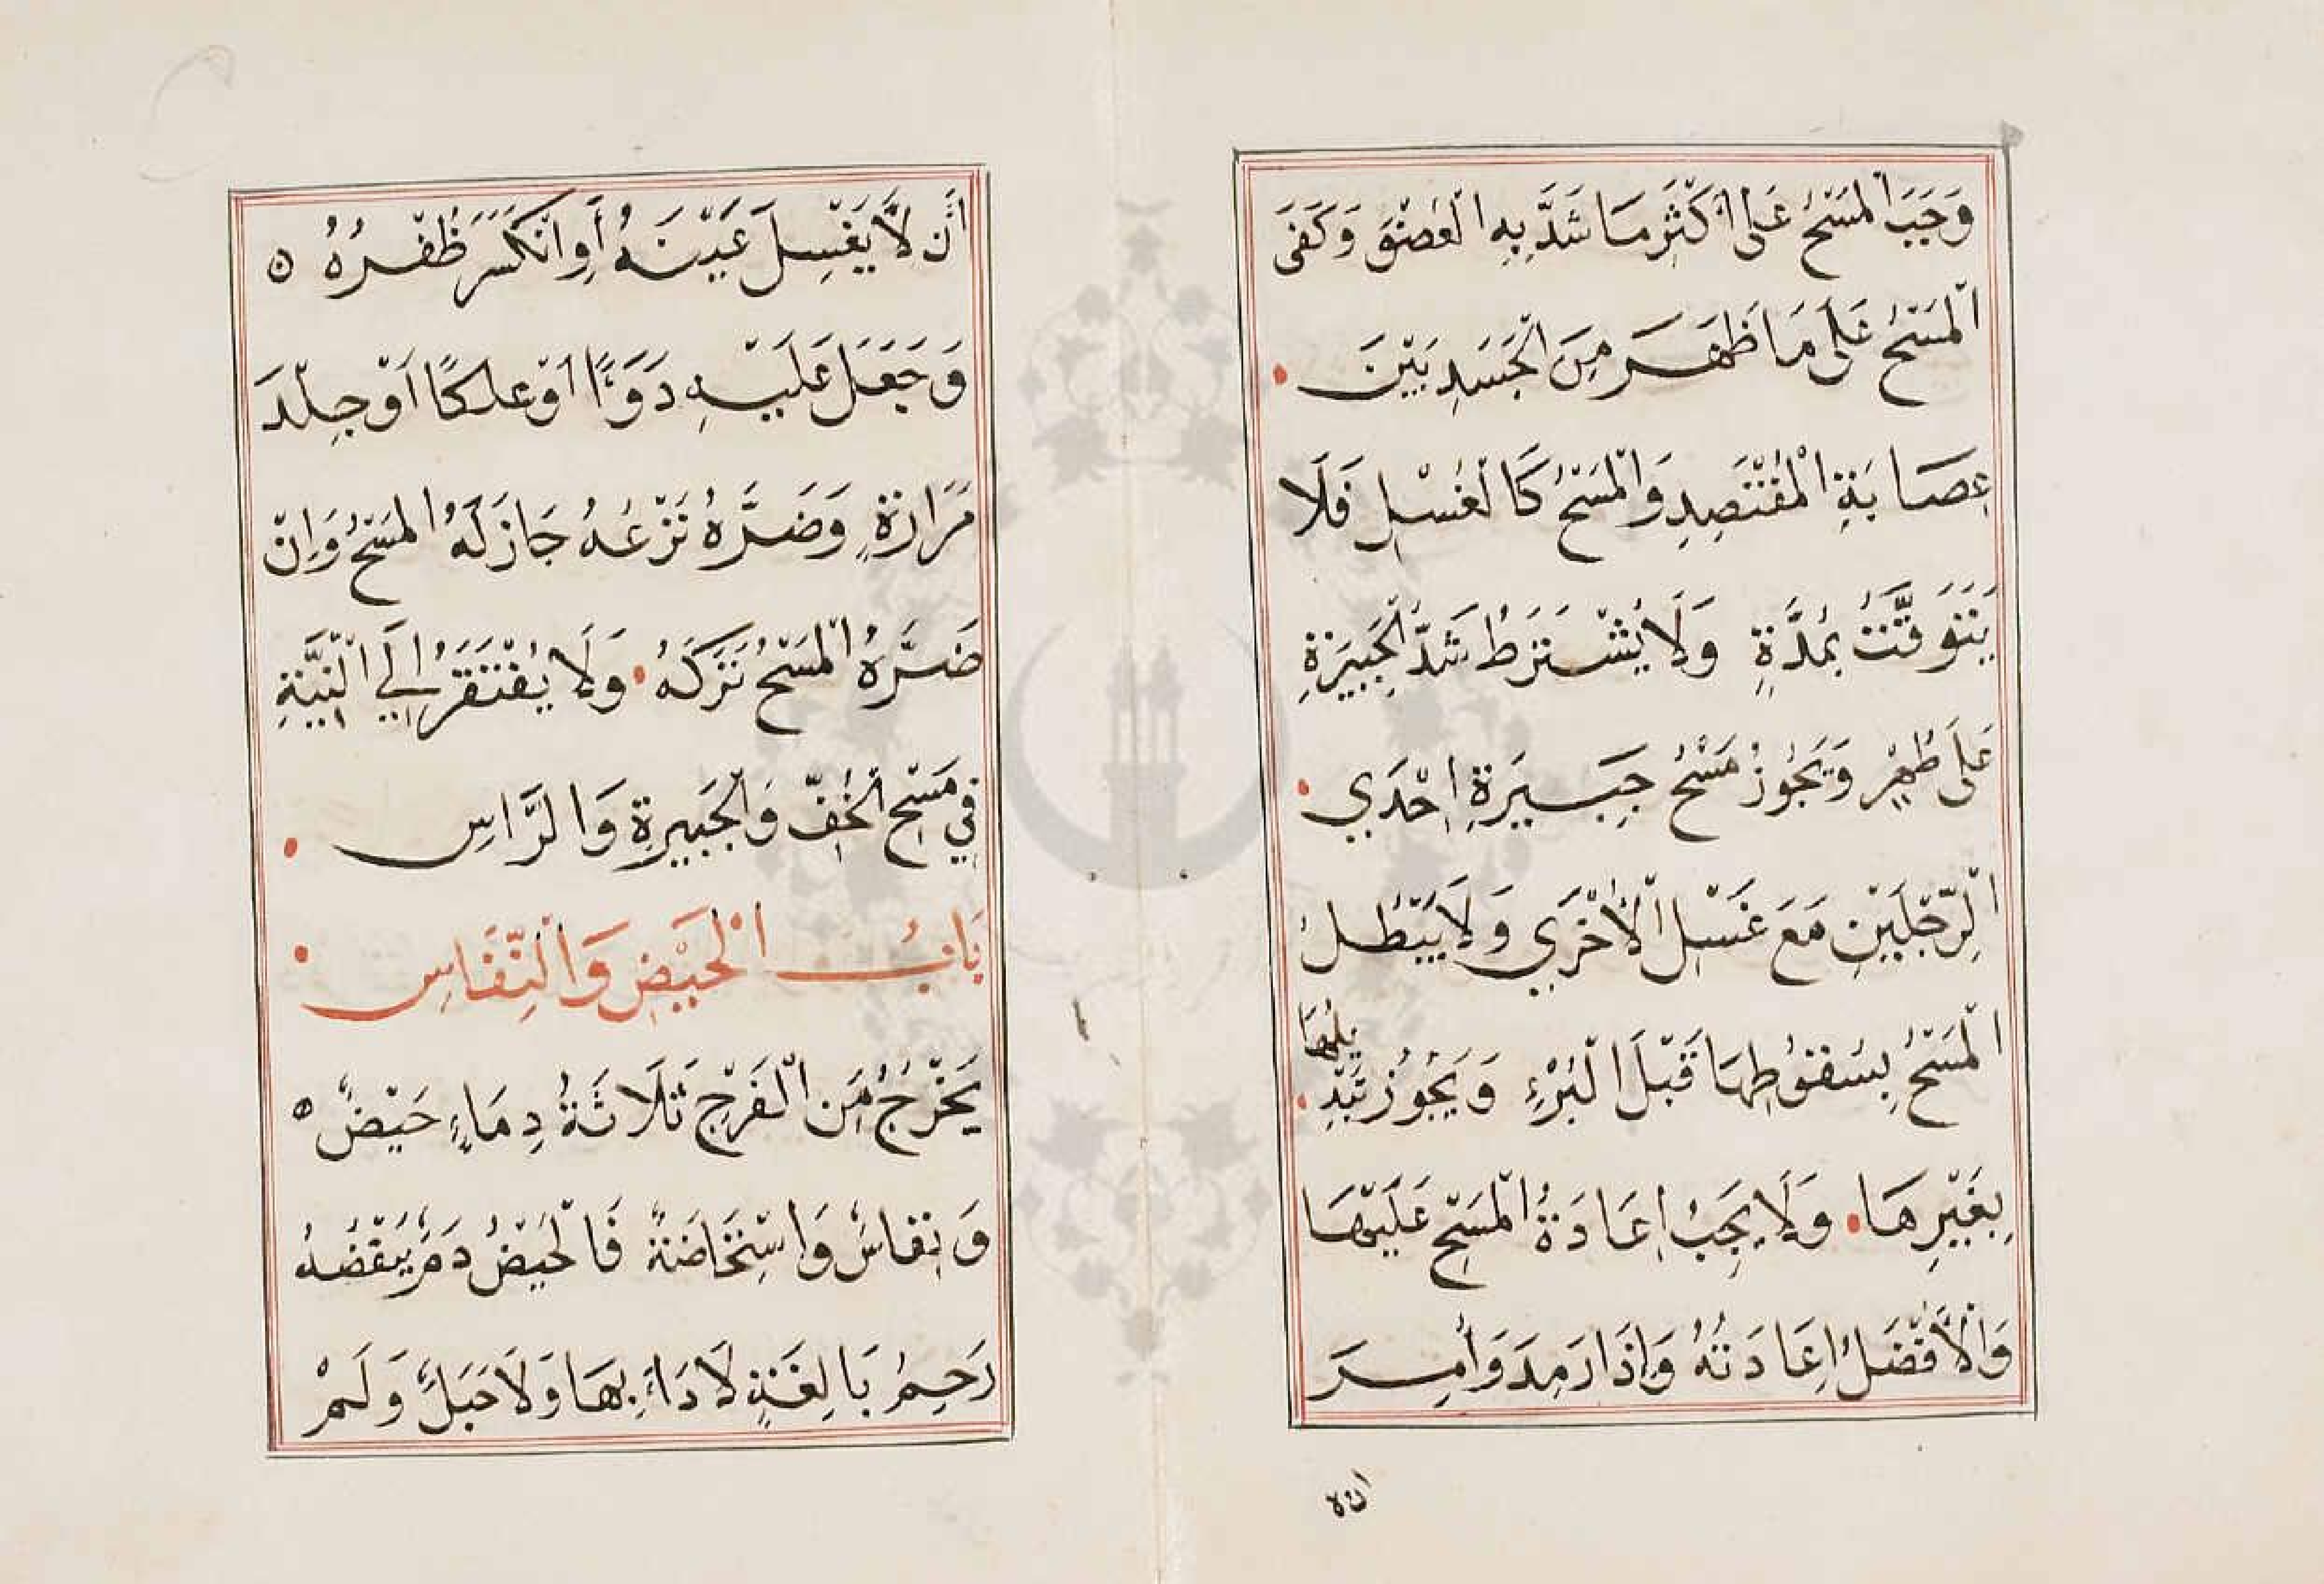 وَجَبَ الْمَسْحُ عَلَى اَكْثَرِ مَا شَدَّ بِهِ الْعُضْوَ وَكَفَى
الْمَسْحُ عَلَى مَا ظَهَرَ مِنَ الْجَسَدِ بَيْنَ
عِصَابَةِ الْمُفْتَصِدِ وَالْمَسْحُ كَالْغُسْلِ فَلَا
يَتَوَقَّتُ بِمُدَّةٍ وَلَا يُشْتَرَطُ شَدُّ الْجَبِيرَةِ
عَلَى طُهْرٍ وَيَجُوزُ مَسْحُ جَبِيرَةِ اِحْدَي
الرِّجْلَيْنِ مَعَ غَسْلِ الْاُخْرَي وَلَا يَبْطُلُ
الْمَسْحُ بِسُقُوطِهَا قَبْلَ الْبُرْءِ وَيَجُوزُ تَبْدِيلُهَا
بِغَيْرِهَا وَلَا يَجِبُ اِعَادَةُ الْمَسْحِ عَلَيْهَا
وَالْاَفْضَلُ اِعَادَتُهُ وَاِذَا رَمِدَ وَأُمِرَ
اَنْ لَا يَغْسِلَ عَيْنَهُ أَوِ انْكَسَرَ ظُفْرُهُ
وَجَعَلَ عَلَيْهِ دَوَاءً اَوْ عِلكًا اَوْ جِلْدَ
مَرَارَةٍ وَضَرَّهُ نَزْعُهُ جَازَ لَهُ الْمَسْحُ وَاِنْ
ضَرَّهُ الْمَسْحُ تَرَكَهُ وَلَا يُفْتَقَرُ اِلَي النِّيَّةِ
فِي مَسْحِ الْخُفِّ وَالْجَبِيرَةِ وَالرَّاسِ
بَابُ الْحَيْضِ وَالنِّفَاسِ
يَخْرُجُ مِنَ الْفَرْجِ ثَلَاثَةُ دِمَاءٍ حَيْضٌ
وَنِفَاسٌ وَاسْتِحَاضَةٌ فَالْحَيْضُ دَمٌ يَنْفُضُهُ
رَحِمُ بَالِغَةٍ لَا دَاءَ بِهَا وَلَا حَبَلَ وَلَمْ